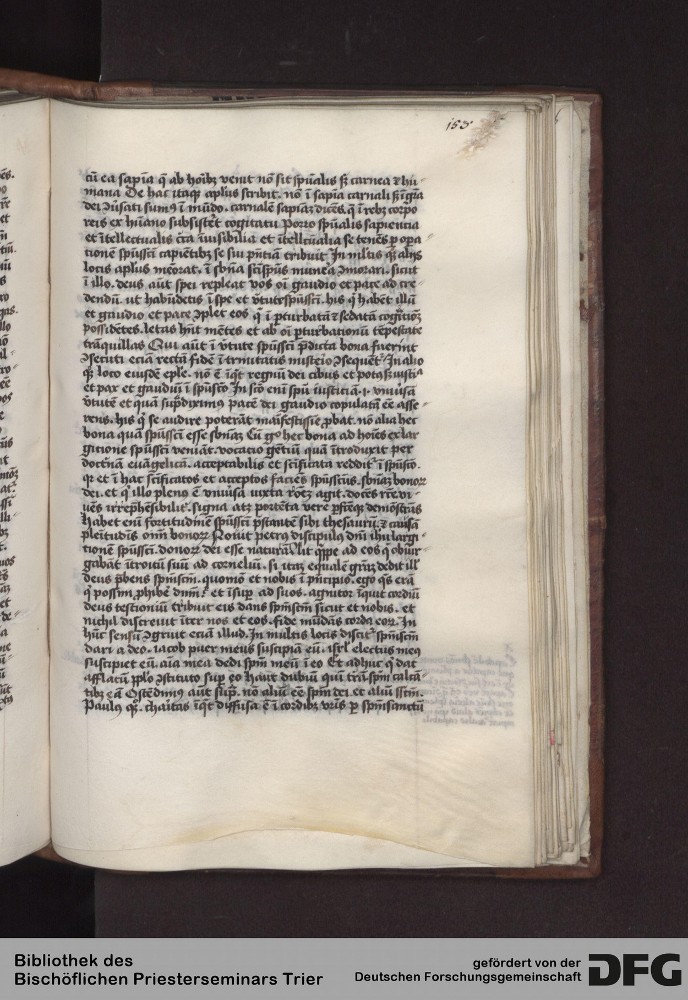 153
cū ea sapīa q̄ ab hoībz venit nō sit spūalis sꝫ carnea ⁊ hu
mana De hac itaqꝫ aplus scribit. nō ī sapīa carnali sꝫ ī grā
dei ↄ̄ūsati sumꝰ ī mūdo. carnalē sapīaꝫ dicēs. q̄ ī rebꝫ corpo
reis ex hūano subsistēt cogitatu Porro spūalis sapiencia
et ītellectualis circa īuisibilia et ītellectualia se tenēs ꝑ opa
tionē spūssci capiētibꝫ se sui pñtiam tribuit In mltis
locis aplus meōrat. ī sbña sci spūs munera ↄmorari. sicut
ī illo. deus aūt spei repleat vos oī gaudio et pace ad cre
dendū. ut habūdetis ī spe et v̄tute spūssci. his q̄ habēt illū
et gaudio et pace ↄplet eos q̄ ī pturbatā ⁊ sedatā cogitōeꝫ
possidētes. letas hñt mētes et ab oī pturbationū tēpestate
trāquillas Qui aūt ī v̄tute spūssci p̄dicta bona fuerint
ↄsecuti eciā rectā fidē ī trinitatis misteio ↄsequēt᷑ In alio
qꝫ loco eiusdē eplē. nō ē īqt regnū dei cibus et potꝰ sꝫ iustiᵃ
et pax et gaudiū ī spūsco In sco enī spū iusticiā .i. vniūsā
v̄tutē et quā sup̄diximꝰ pacē dei gaudio copulatā eē asse
rens. his q̄ se audire poterāt māifestissīe ꝓbat. nō alia hec
bona quā spūssci esse sbñaꝫ Cū gͦ hec bona ad hoīes ex lar
gicione spūssci veniāt. vocatio gētiū quā ītroduxit per
doctnā euāgelicā. acceptabilis et scificata reddit᷑ ī spūsco.
qꝫ et ī hac scificatos et acceptos faciēs spūsscūs. sbñaꝫ bonoꝝ
dei. et q̄ illo plenꝰ ē vniūsa iuxta rōeꝫ agit. docēs rcē vi
uēs irrep̄hēsibilit᷑. signa atqꝫ portēta vere ꝑfcēqꝫ demōstrās
habet enī fortitudinē spūssci p̄stantē sibi thesaurū. ⁊ causā
plēitudīs oīm bonoꝝ Nouit petrus discipulꝰ dnī ihu largi
tionē spūssci. donoꝝ dei esse naturā lit q̄ppe ad eos q̄ obiur
gabāt ītroitū suū ad corneliū. si itaqꝫ equalē grāꝫ dedit ill᷑
deus p̄bens spmscm. quomō et nobis ī pncipio. ego qͥs erā
qͥ possim ꝓhibē dnm: et īsuꝑ ad suos. agnitor īquit cordiū
deus testioniū tribuit eis dans spmscm sicut et nobis. et
nichil discreuit īter nos et eos. fide mūdās corda eoꝝ In
hūc sensū ↄgruit eciā illud. In multis locis discit᷑ spmscm
dari a deo. iacob puer meus suscipiā eū. isrl electus meꝰ
suscipiet eū. aīa mea dedi spm meū ī eo Et adhuc q̄ dat
afflatū pplo ↄstituto suꝑ eo haut dubiū qui trā spm calcā
tibꝫ eā Ostēdimꝰ aūt supᵃ. nō aliū eē spm dei. et aliū sctm.
Paulꝰ qꝫ. charitas īqt diffusa ē ī cordibꝫ vris ꝑ spmsanctū
Bibliothek des
Bischöflichen Priesterseminars Trier
gefördert von der
Deutschen Forschungsgemeinschaft
DFG